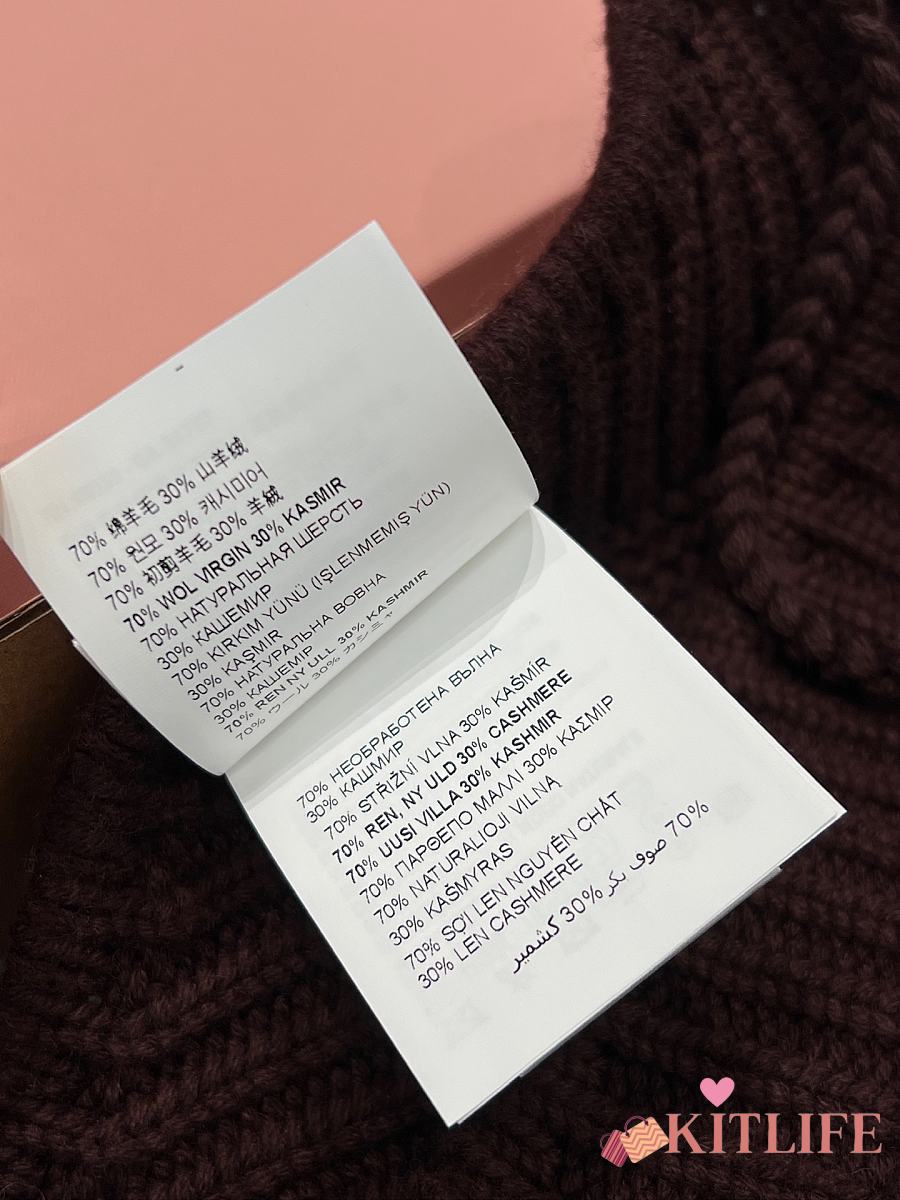 70% 绵羊毛 30% 山羊绒
70% 원모 30% 캐시미어
70% 初剪羊毛 30% 羊絨
70% WOL VIRGIN 30% KASMIR
70% НАТУРАЛЬНАЯ ШЕРСТЬ
30% КАШЕМИР
70% KIRKIM YÜNÜ (IŞLENMEMIŞ YÜN)
30% KAŞMIR
70% НАТУРАЛЬНА ВОВНА
30% КАШЕМІР
70% REN NY ULL 30% KASHMIR
70% ウール 30% カシミヤ
70% НЕОБРАБОТЕНА ВЪЛНА
30% КАШМИР
70% STŘIŽNÍ VLNA 30% KAŠMÍR
70% REN, NY ULD 30% CASHMERE
70% UUSI VILLA 30% KASHMIR
70% ΠΑΡΘΕΠΟ ΜΑΛΛΙ 30% ΚΑΣΜΙΡ
70% NATURALIOJI VILNĄ
30% KAŠMYRAS
70% SỢI LEN NGUYÊN CHẤT
30% LEN CASHMERE
70% صوف بكر 30% كشمير
KITLIFE